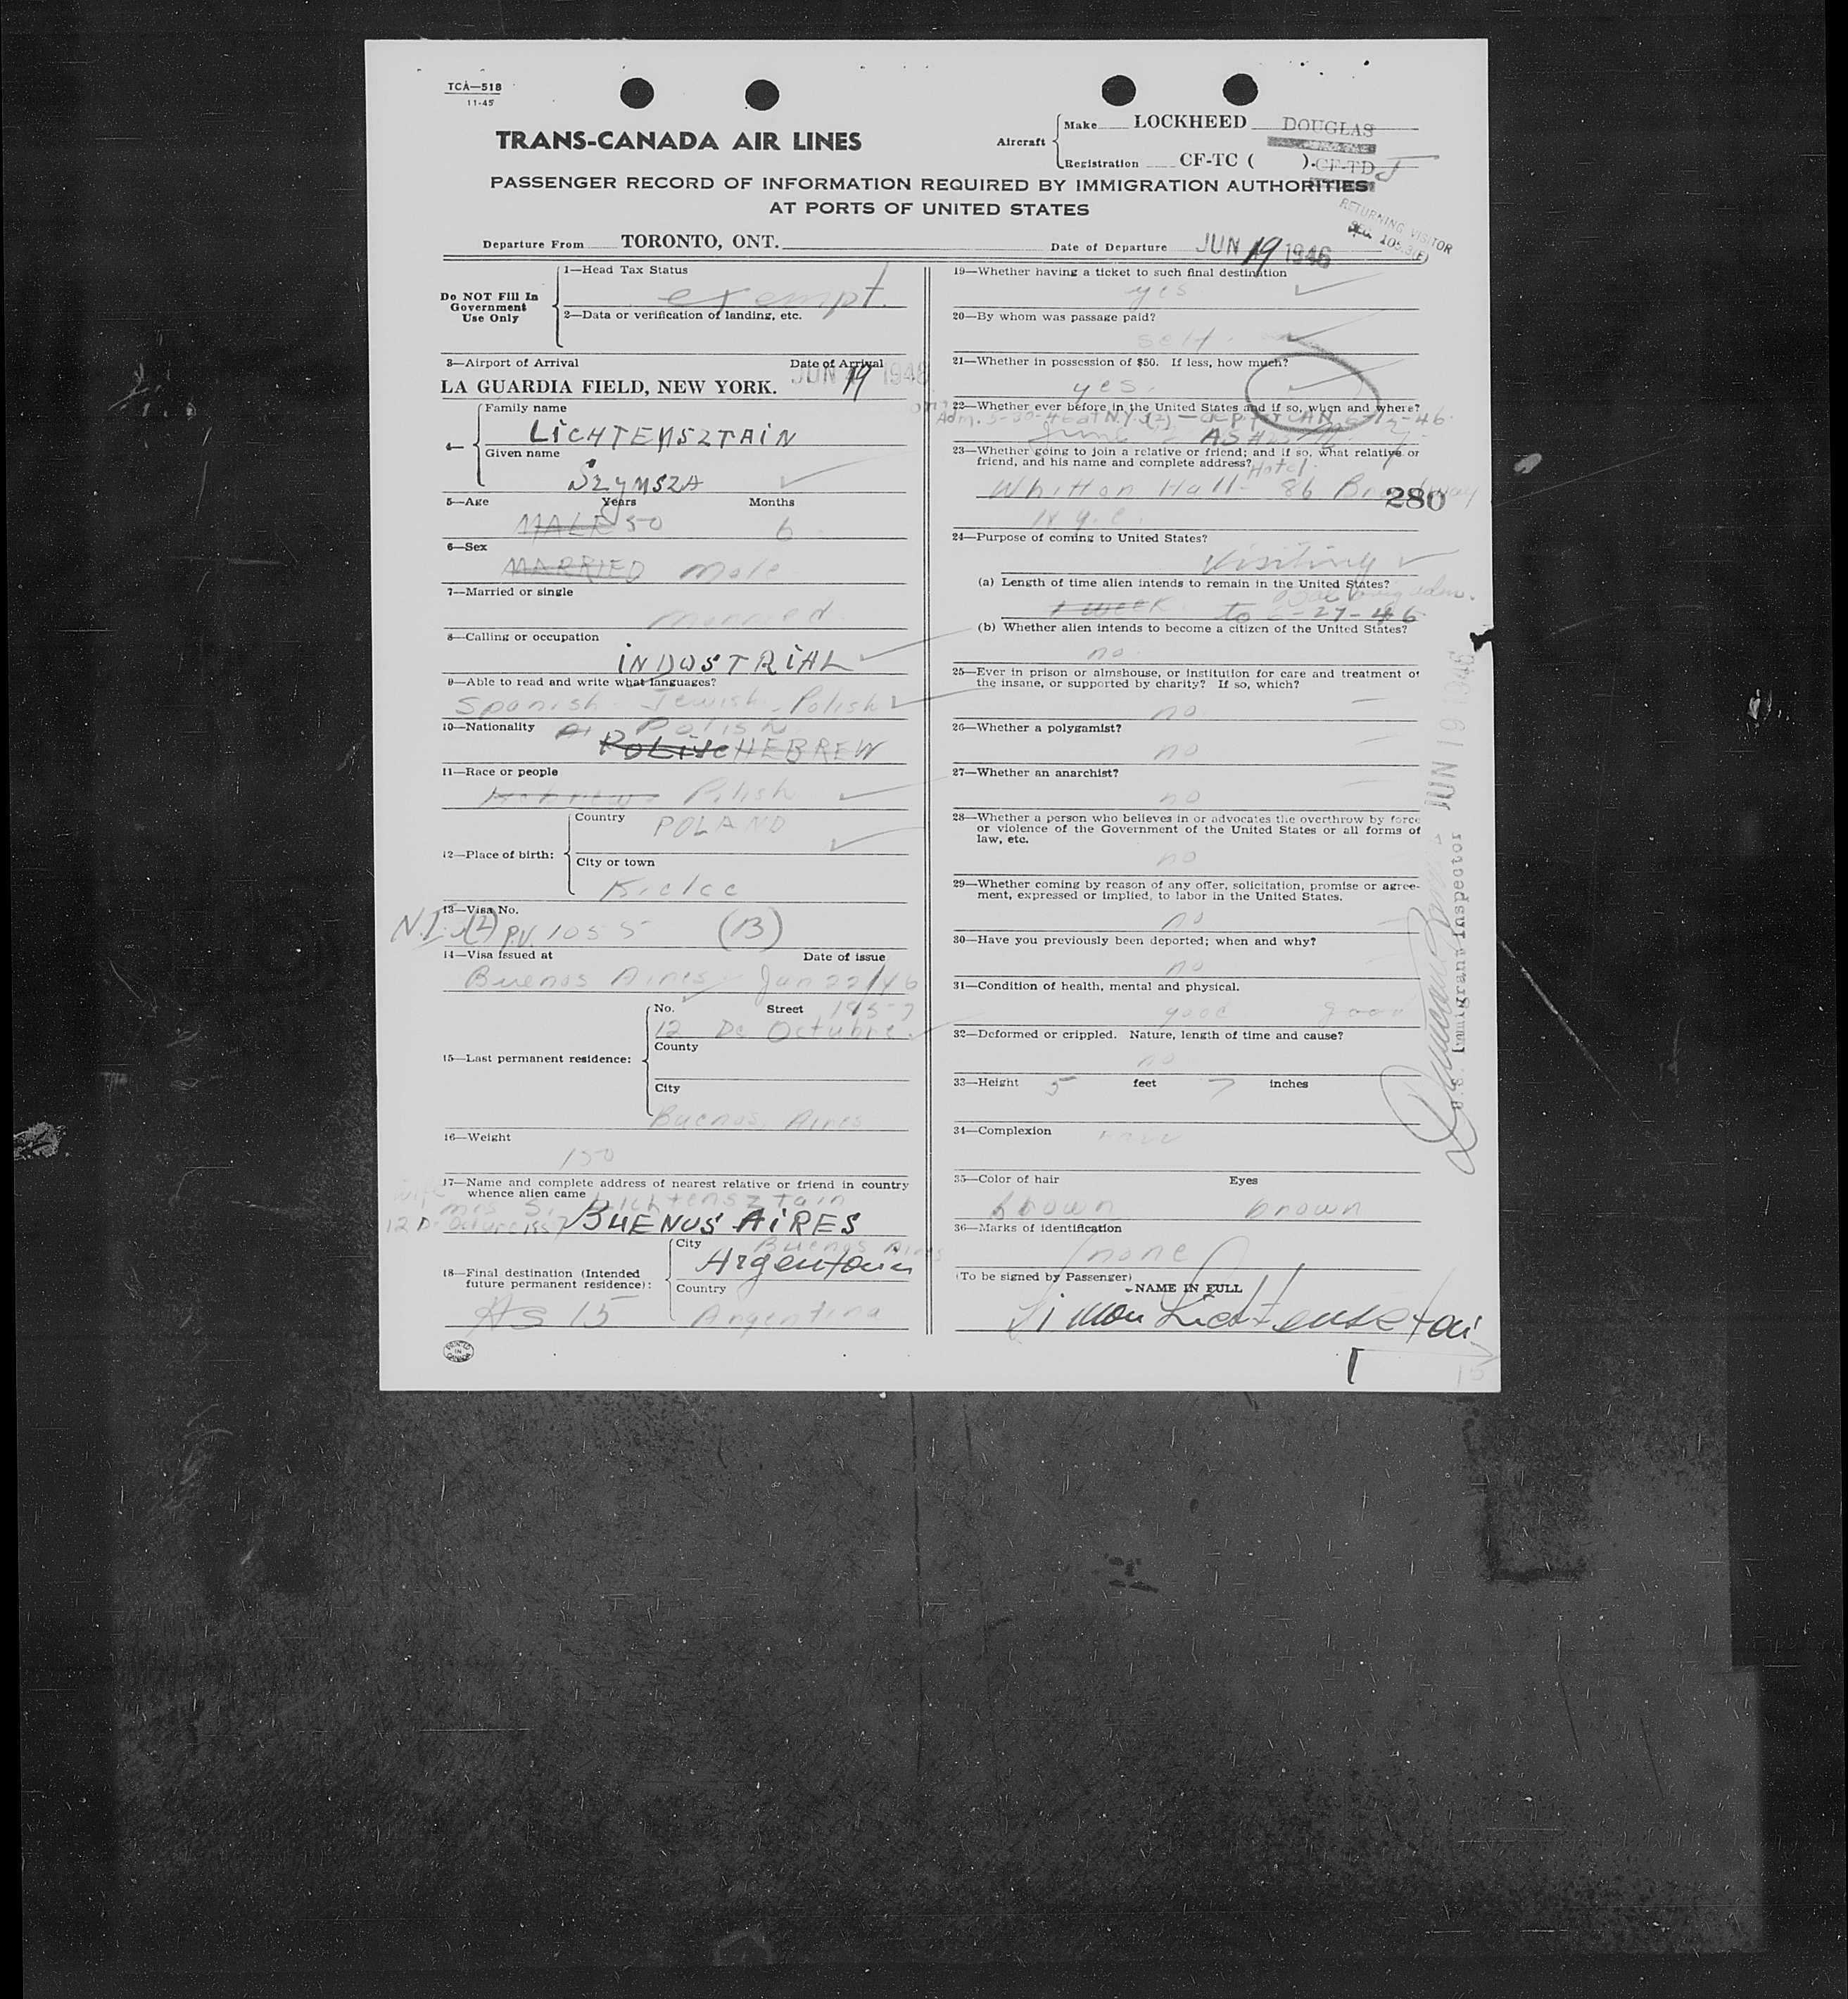 TCA—518
11-45
TRANS-CANADA AIR LINES
Aircraft
Make LOCKHEED DOUGLAS
Registration CF-TC ( ). CF-TD J
PASSENGER RECORD OF INFORMATION REQUIRED BY IMMIGRATION AUTHORITIES
AT PORTS OF UNITED STATES
RETURNING VISITOR
Departure From TORONTO, ONT. Date of Departure JUN 19 1946
Do NOT Fill In
Government
Use Only
1—Head Tax Status
exempt.
2—Data or verification of landing, etc.
3—Airport of Arrival Date of Arrival
LA GUARDIA FIELD, NEW YORK. JUN 19 1946
4—
Family name
LICHTENSZTAIN
Given name
SZYMSZA
5—Age Years Months
MALE 50 6
6—Sex
MARRIED Male
7—Married or single
Married
8—Calling or occupation
INDUSTRIAL
9—Able to read and write what languages?
Spanish - Jewish - Polish
10—Nationality POLISH
POLISH HEBREW
11—Race or people
Hebrew Polish
12—Place of birth:
Country POLAND
City or town
Kielce
13—Visa No.
N.I. 3(2) P.V. 1055 (B)
14—Visa issued at Date of issue
Buenos Aires Jan 22/46
15—Last permanent residence:
No. Street 1957
12 De Octubre
County
City
Buenos Aires
16—Weight
150
17—Name and complete address of nearest relative or friend in country
whence alien came
Mrs S. Lichtensztain
BUENOS AIRES
18—Final destination (Intended
future permanent residence):
City Buenos Aires
Argentain
Country
As 15 Argentina
19—Whether having a ticket to such final destination
yes
20—By whom was passage paid?
self
21—Whether in possession of $50. If less, how much?
yes.
22—Whether ever before in the United States and if so, when and where?
Adm. 5-30-46 at N.Y. 3(2)
June
23—Whether going to join a relative or friend; and if so, what relative or
friend, and his name and complete address? Hotel
Whitton Hall - 86 Broadway
280
N.Y.C.
24—Purpose of coming to United States?
Visiting
(a) Length of time alien intends to remain in the United States?
1 week to 6-27-46
(b) Whether alien intends to become a citizen of the United States?
no.
25—Ever in prison or almshouse, or institution for care and treatment of
the insane, or supported by charity? If so, which?
no
26—Whether a polygamist?
no
27—Whether an anarchist?
no
28—Whether a person who believes in or advocates the overthrow by force
or violence of the Government of the United States or all forms of
law, etc.
no
29—Whether coming by reason of any offer, solicitation, promise or agree-
ment, expressed or implied, to labor in the United States.
no
30—Have you previously been deported; when and why?
no
31—Condition of health, mental and physical.
good good
32—Deformed or crippled. Nature, length of time and cause?
no
33—Height 5 feet 7 inches
34—Complexion
35—Color of hair Eyes
brown brown
36—Marks of identification
none
(To be signed by Passenger)
NAME IN FULL
Simon Lichtensztai
JUN 19 1946
U.S. Immigrant Inspector
PRINTED IN CANADA
15